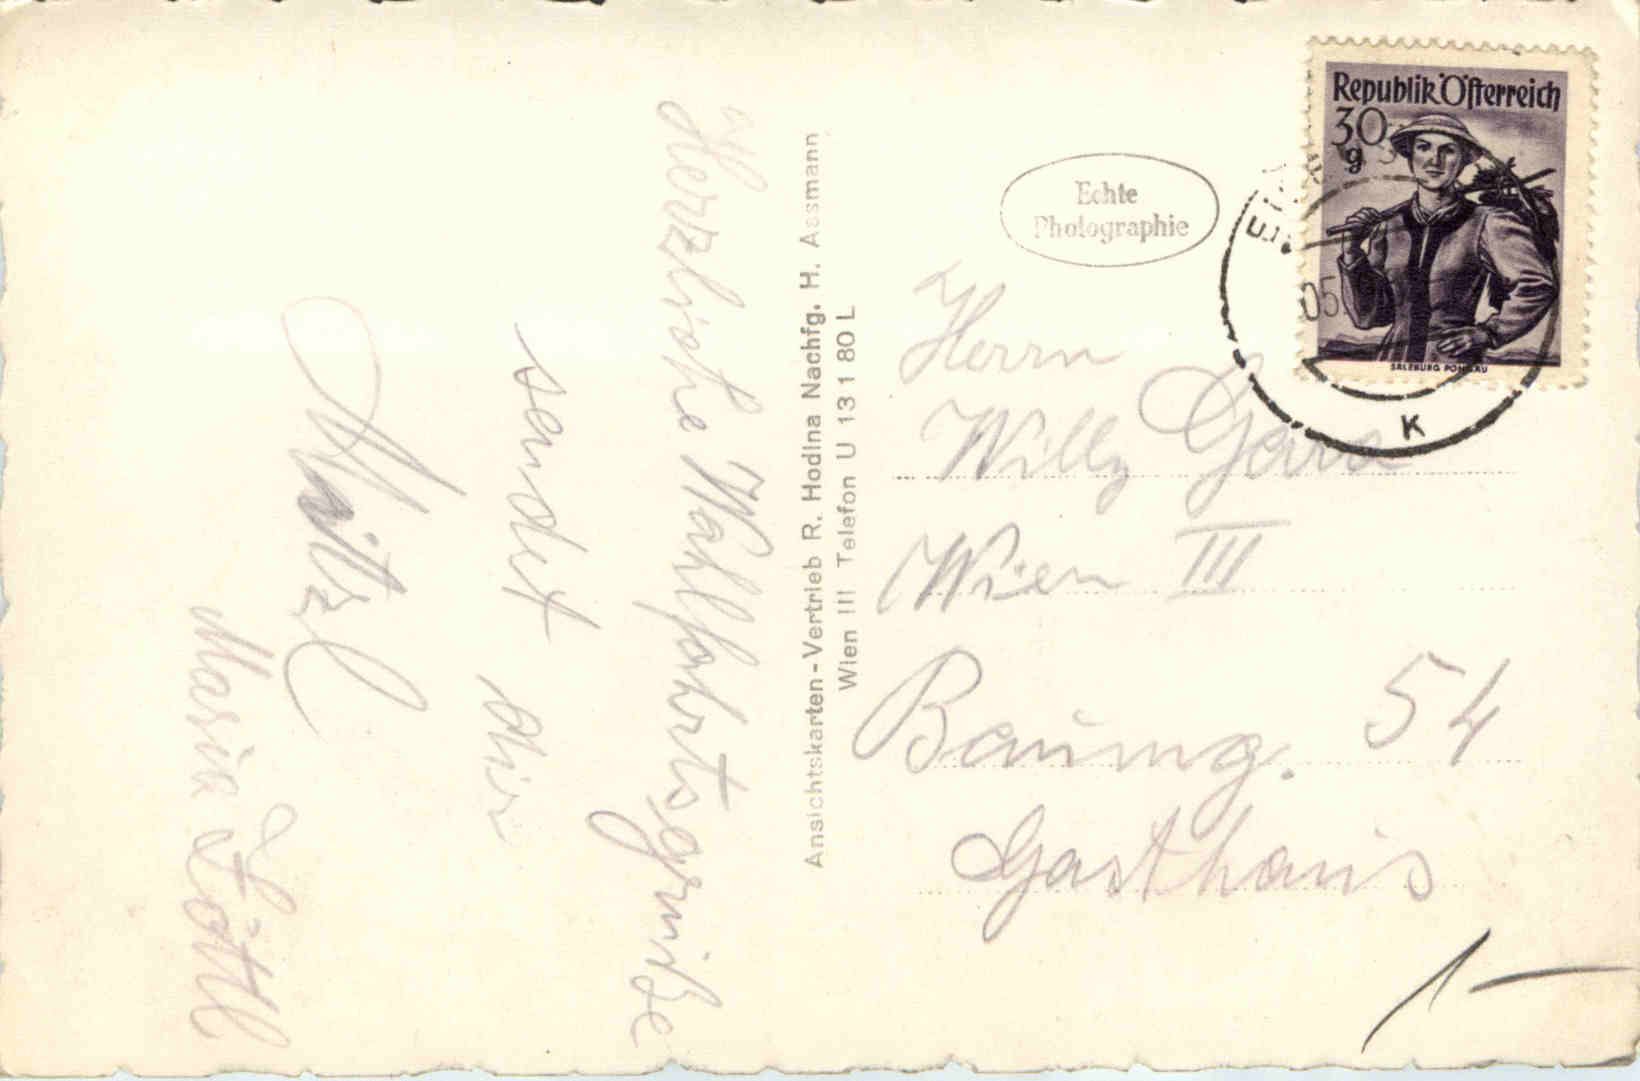 Herzliche Wallfahrtsgrüße
sendet dir
Mitzl
Maria
Ansichtskarten-Vertrieb R. Hodina Nachfg. H. Assmann
Wien III Telefon U 13 1 80 L
Echte
Photographie
Republik Österreich
30
g
SALZBURG PONGAU
K
Herrn
Willy Gara
Wien III
Baumg. 54
Gasthaus
1-